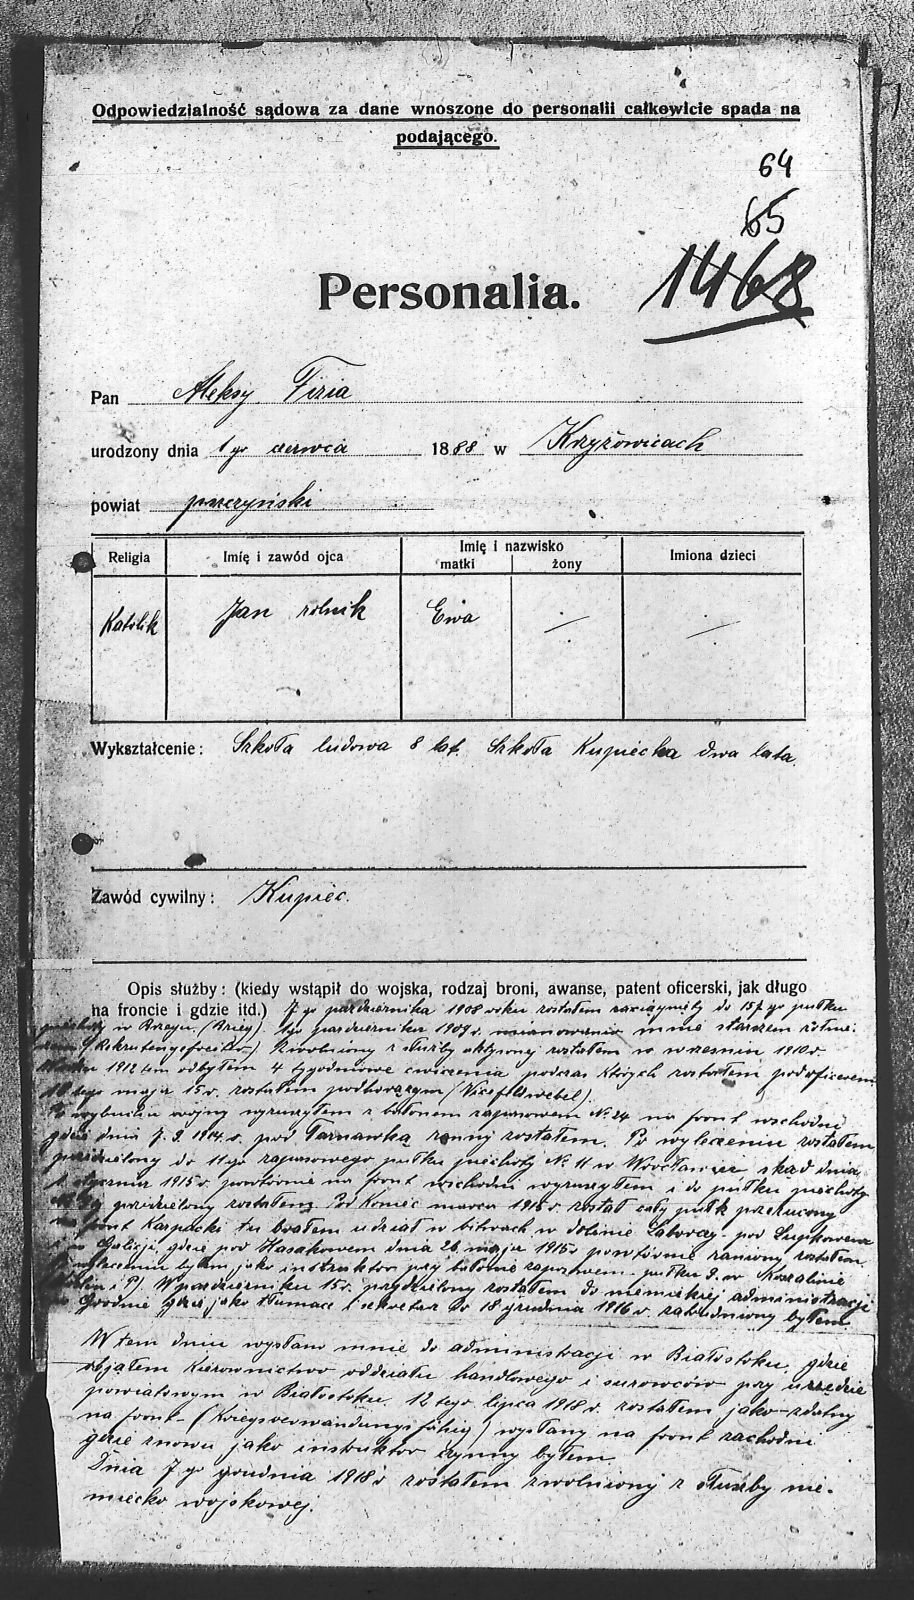 Odpowiedzialność sądowa za dane wnoszone do personalii całkowicie spada na
podającego.
64
65
1468
Personalia.
Pan Aleksy Fizia
urodzony dnia 1 go czerwca 1888 w Krzyżowicach
powiat pszczyński
Religia Imię i zawód ojca Imię i nazwisko Imiona dzieci
matki żony
Katolik Jan rolnik Ewa
Wykształcenie: Szkoła ludowa 8 lat. Szkoła Kupiecka dwa lata.
Zawód cywilny: Kupiec.
Opis służby: (kiedy wstąpił do wojska, rodzaj broni, awanse, patent oficerski, jak długo
na froncie i gdzie itd.) 7 go października 1908 roku zostałem zaciągnięty do 157 go pułku
piechoty w Brzegu (Brieg). 1 go października 1909 r. mianowano mnie starszym żołnie-
rzem (Rekrutengefreiter) Zwolniony z służby aktywnej zostałem w wrześniu 1910 r.
1912 tem odbyłem 4 tygodniowe ćwiczenia podczas których zostałem podoficerem
maja 15 r. zostałem podchorążym (Vicefeldwebel).
Po wybuchu wojny wyruszyłem z batonem zapasowem № 24 na front wschodni
gdzie dnia 7. 9. 1914. r. pod Tarnawką ranny zostałem. Po wyleczeniu zostałem
przydzielony do 11 go zapasowego pułku piechoty № 11 w Wrocławiu skąd dnia
stycznia 1915 r. powtórnie na front wschodni wyruszyłem i do pułku piechoty
przydzielony zostałem. Pod koniec marca 1915 r. został cały pułk przerzucony
na front Karpacki tu brałem udział w bitwach w dolinie Laborczy pod Łupkowem
i w Galicji, gdzie pod Husakowem dnia 26 maja 1915 r powtórnie raniony zostałem.
Po wyleczeniu byłem jako instruktor przy batonie zapasowem pułku 9. w Koszalinie
(Köslin i P). W październiku 15 r. przydzielony zostałem do niemieckiej administracji
w Grodnie gdzie jako tłumacz i sekretar do 18 grudnia 1916 r. zatrudniony byłem.
W tem dniu wysłano mnie do administracji w Białostoku, gdzie
objąłem kierownictwo oddziału handlowego i surowców przy urzędzie
powiatowym w Białostoku. 12 tego lipca 1918 r. zostałem jako zdatny
na front (Kriegsverwendungsfähig) wysłany na front zachodni
gdzie znowu jako instruktor czynny byłem.
Dnia 7 go grudnia 1918 r zostałem zwolniony z służby nie-
miecko wojskowej.